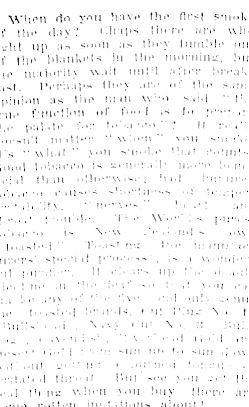 When do you have the first smoke
of the day? Chaps there are who
light up as soon as they tumble out
of the blankets in the morning, but
the majority wait until after break-
fast. Perhaps they are of the same
opinion as the man who said "the
true function of food is to prepare
the palate for tobacco"? It really
doesn't matter "when" you smoke
it's "what" you smoke that counts.
Good tobacco is generally more
than otherwise; bad
tobacco causes shortness of temper
irritability, "nerves" heart and
trouble. The World's purest
tobacco is New Zealand's own
"toasted." Toasting, the manufac-
turers' special process, is a wonder-
ful purifier. It clears up the
nicotine in the leaf so that you can
smoke any of the five and only genu-
ine toasted brands, Cut Plug No. 10
(Bullshead), Navy Cut No. 3 (Bull-
dog), Cavendish, Riverhead Gold and
Desert Gold from sun up to sun down
without getting a
throat. But see you get the
real thing when you buy there are
some rotten imitations about!